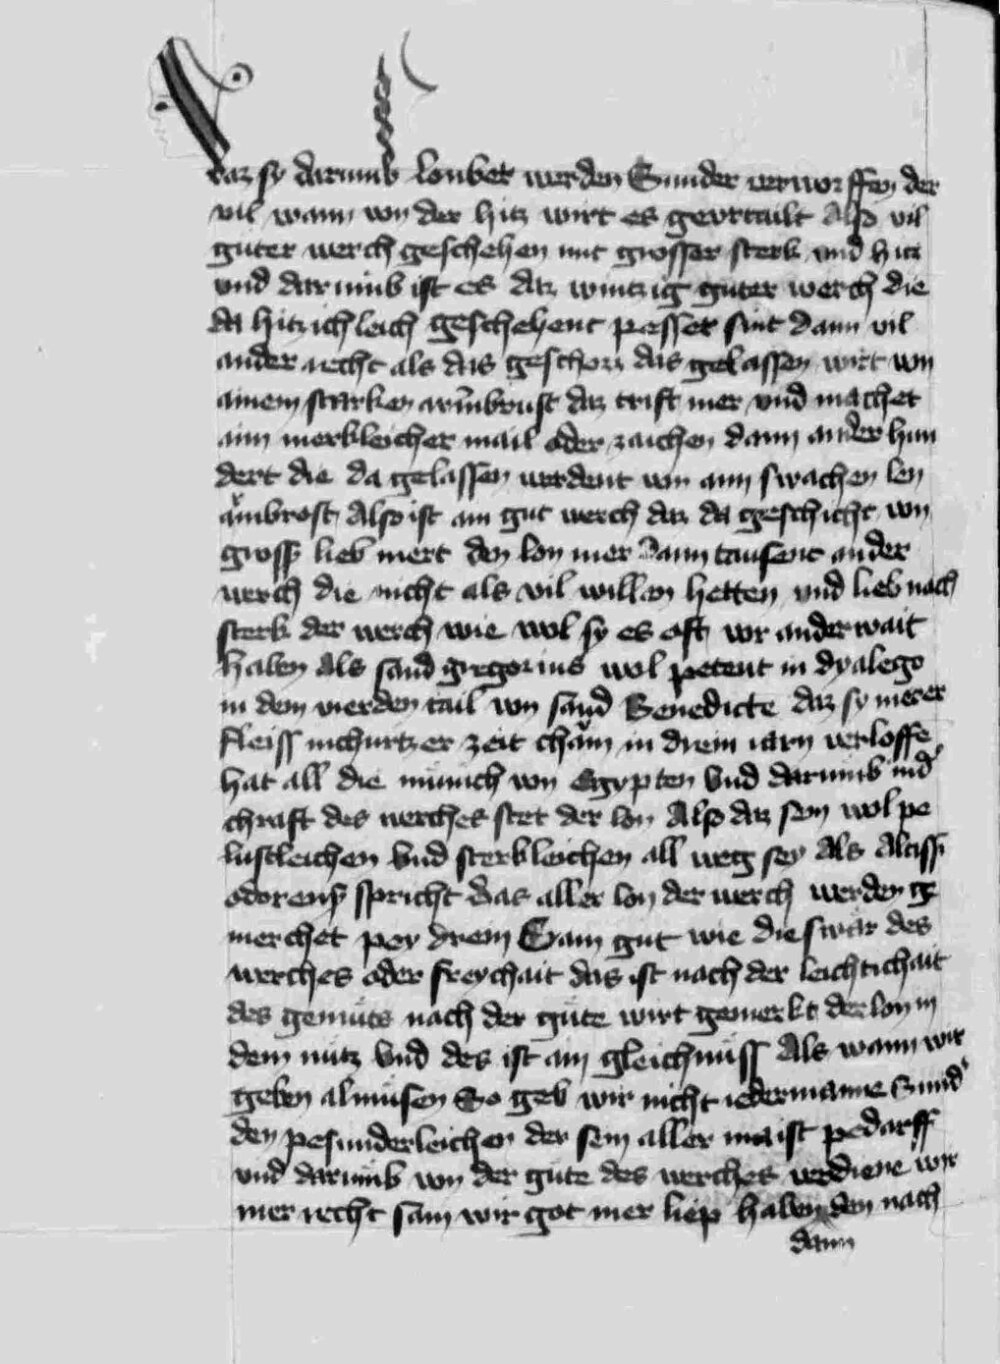 daz sy darumb lonber werden Sunder verworffen der
vil wann von der hitz wirt es gevrtailt Also vil
guter werch geschehen mit grosser sterk vnd hitz
vnd darumb ist es daz wintzig guter werch die
da hitzichleich geschehent pesser sint dann vil
ander recht als das geschozz das gelassen wirt von
ainem starken armbrust daz trift mer vnd machet
ainn merkleicher mail oder zaichen dann ander hun
dert die da gelassen werdent von ainn swachen len
armbrost Also ist ain gut werch daz da geschicht von
grosser lieb mert den lon mer Dann tausent ander
werch die nicht als vil willen hetten vnd lieb nach
sterk der werch wie wol sy es oft vor anderwait
haben Als sand gregorius wol petent in dyalego
in dem vierden tail von sand Benedicte daz sy merer
fleiss in churtzer zeit cham in drein iarn verloffe
hat all die münich von Egypten Vnd darumb in der
chraft des werches stet der lon Also daz sein wol pe
lustleichen Vnd sterkleichen all weg sey Als Altissi
odorensis spricht Das aller lon der werch werden ge
merchet pey drein Gain gut wie die swär des
werches oder freychait das ist nach der leichtichait
des gemüts nach der güte wirt gemerkt der lon in
dem nutz Vnd des ist ain gleichnüss Als wann wir
geben almüsen So geb wir nicht iedermanne Sunder
den pesunderleichen der sein aller maist pedarff
vnd darumb von der güte des werches verdiene wir
mer recht sam wir got mer liep haben den nach
dann